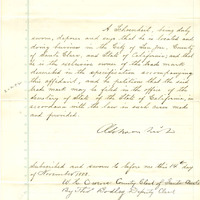 A Schonheit, being duly
sworn, deposes and says that he is located and
doing business in the City of San Jose, County
of Santa Clara, and State of California; and that
he is the exclusive owner of the trade mark
described in the specification accompanying
this affidavit, and he petitions that the said
trade mark may be filed in the office of
the Secretary of State of the State of California, in
accordance with the law in such case made
and provided.
Subscribed and sworn to before me this 14th day
of November 1888.
County Clerk of Santa Clara
Deputy Clerk